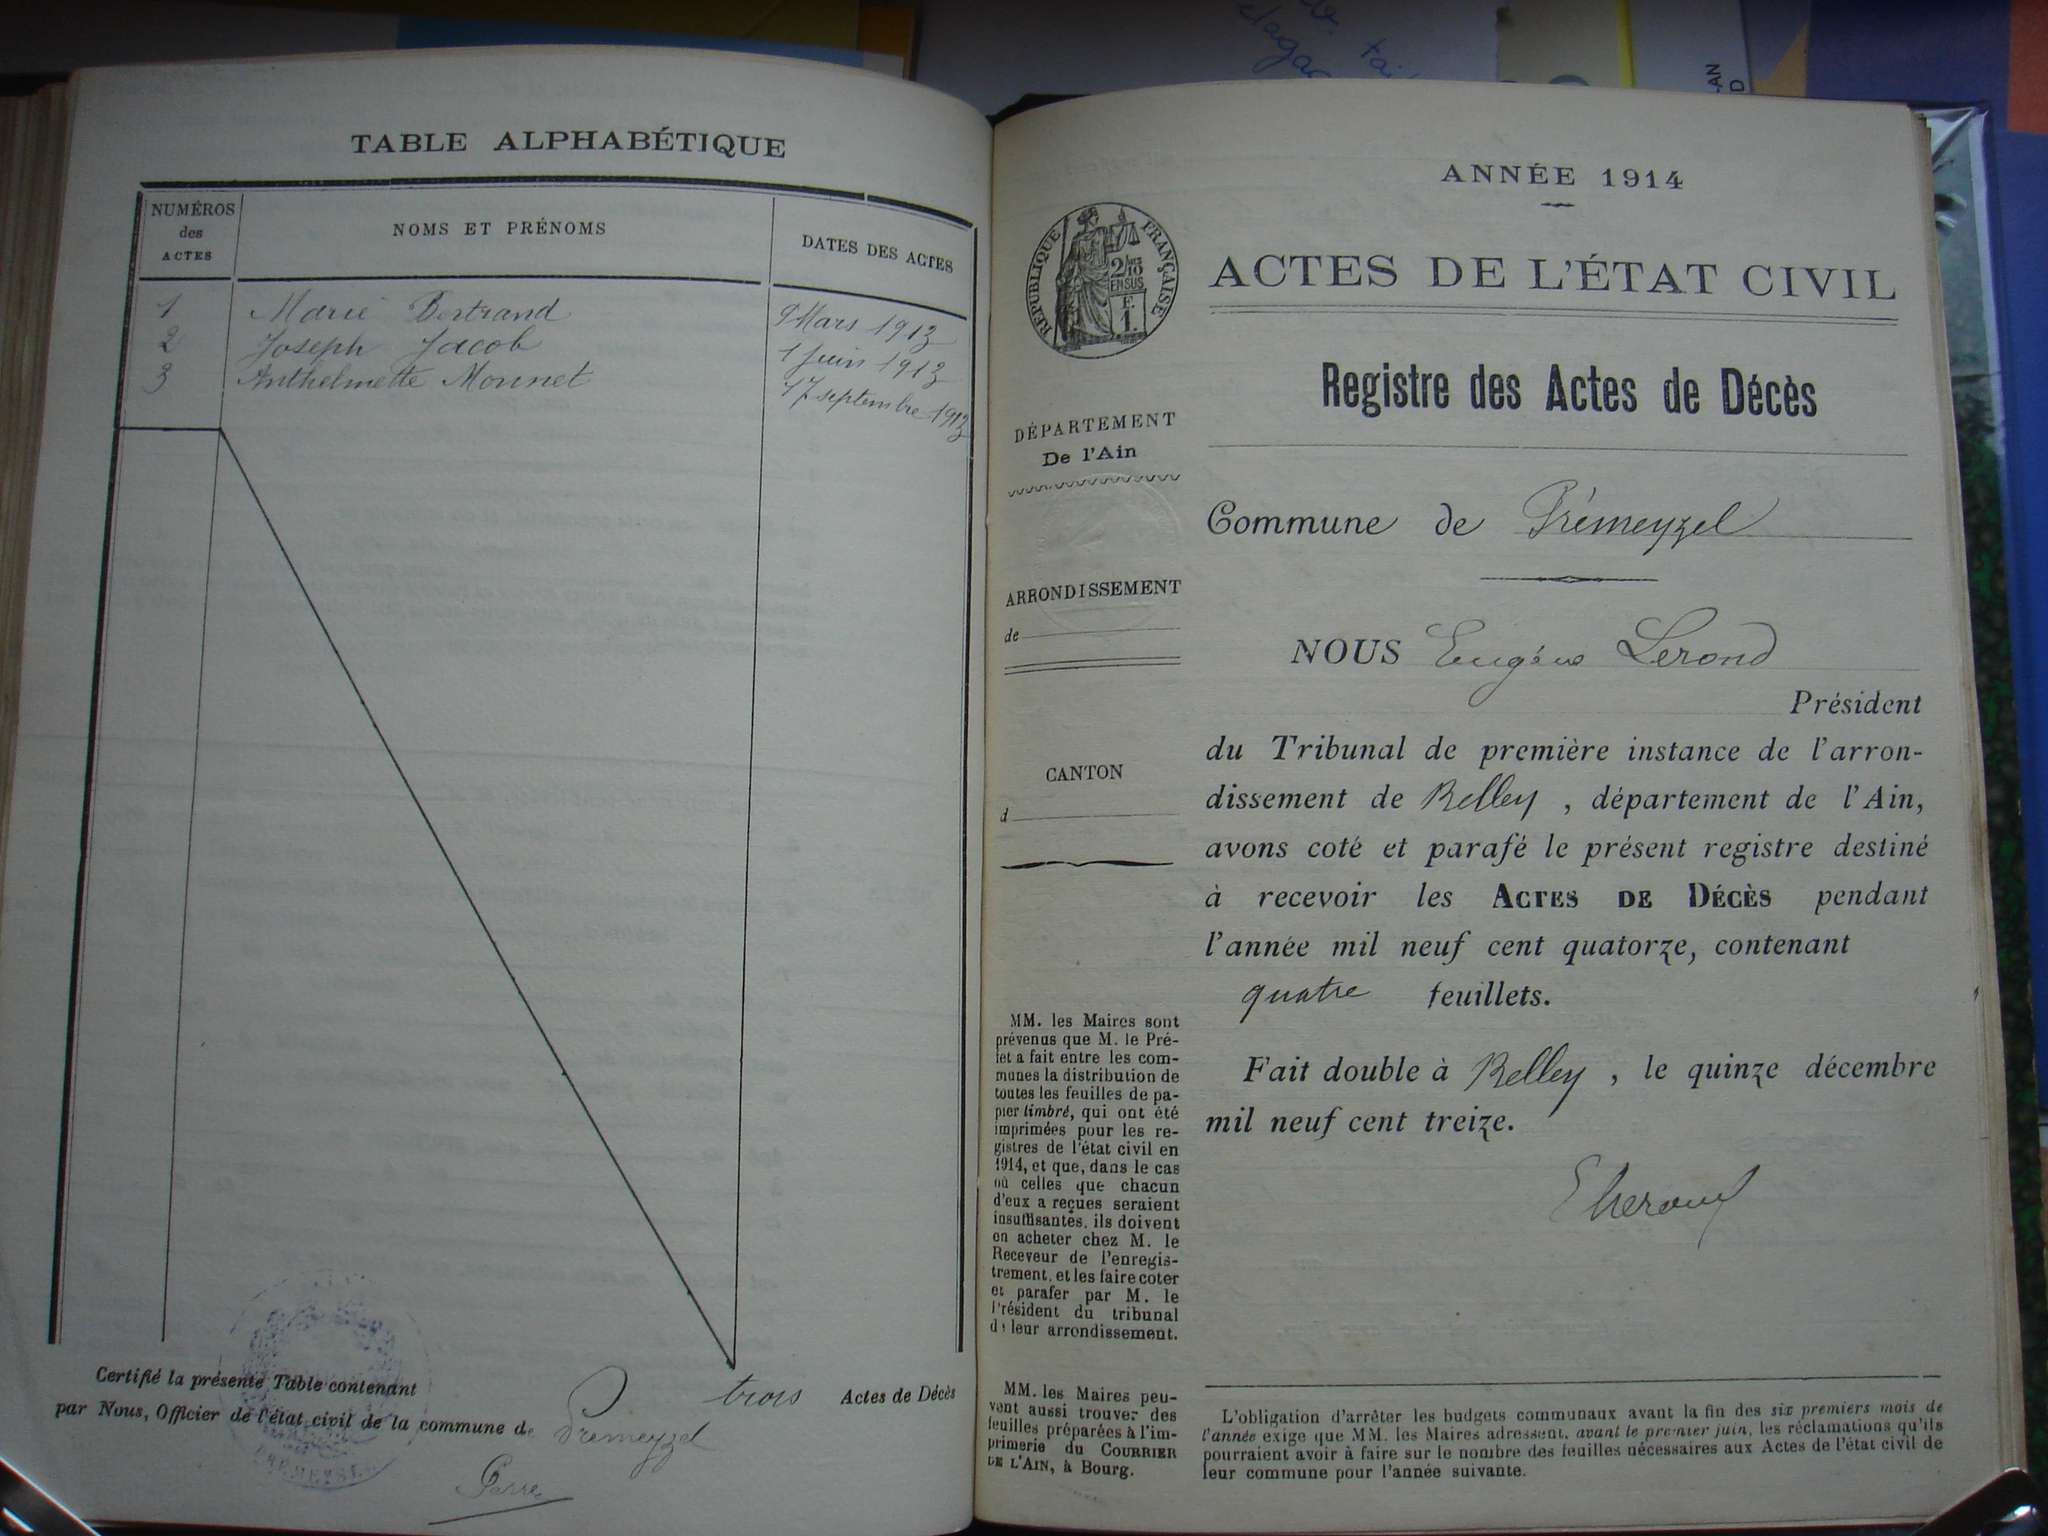 tail
elagac
AN
D
TABLE ALPHABÉTIQUE
NUMÉROS
des
ACTES
NOMS ET PRÉNOMS
DATES DES ACTES
1 Marie Bertrand 9 Mars 1913
2 Joseph Jacob 1 Juin 1913
3 Anthelmette Monnet 17 septembre 1913
Certifié la présente Table contenant trois Actes de Décès
par Nous, Officier de l'état civil de la commune de Premeyzel
ANNÉE 1914
RÉPUBLIQUE FRANÇAISE
2/10
EN SUS
F.
1.
ACTES DE L'ÉTAT CIVIL
Registre des Actes de Décès
DÉPARTEMENT
De l'Ain
Commune de Prémeyzel
ARRONDISSEMENT
de
NOUS Eugène Lerond
Président
du Tribunal de première instance de l'arron-
dissement de Belley, département de l'Ain,
avons coté et parafé le présent registre destiné
à recevoir les ACTES DE DÉCÈS pendant
l'année mil neuf cent quatorze, contenant
quatre feuillets.
Fait double à Belley, le quinze décembre
mil neuf cent treize.
CANTON
d
MM. les Maires sont
prévenus que M. le Pré-
fet a fait entre les com-
munes la distribution de
toutes les feuilles de pa-
pier timbré, qui ont été
imprimées pour les re-
gistres de l'état civil en
1914, et que, dans le cas
où celles que chacun
d'eux a reçues seraient
insuffisantes, ils doivent
en acheter chez M. le
Receveur de l'enregis-
trement, et les faire coter
et parafer par M. le
Président du tribunal
de leur arrondissement.
MM. les Maires peu-
vent aussi trouver des
feuilles préparées à l'im-
primerie du COURRIER
DE L'AIN, à Bourg.
L'obligation d'arrêter les budgets communaux avant la fin des six premiers mois de
l'année exige que MM. les Maires adressent, avant le premier juin, les réclamations qu'ils
pourraient avoir à faire sur le nombre des feuilles nécessaires aux Actes de l'état civil de
leur commune pour l'année suivante.